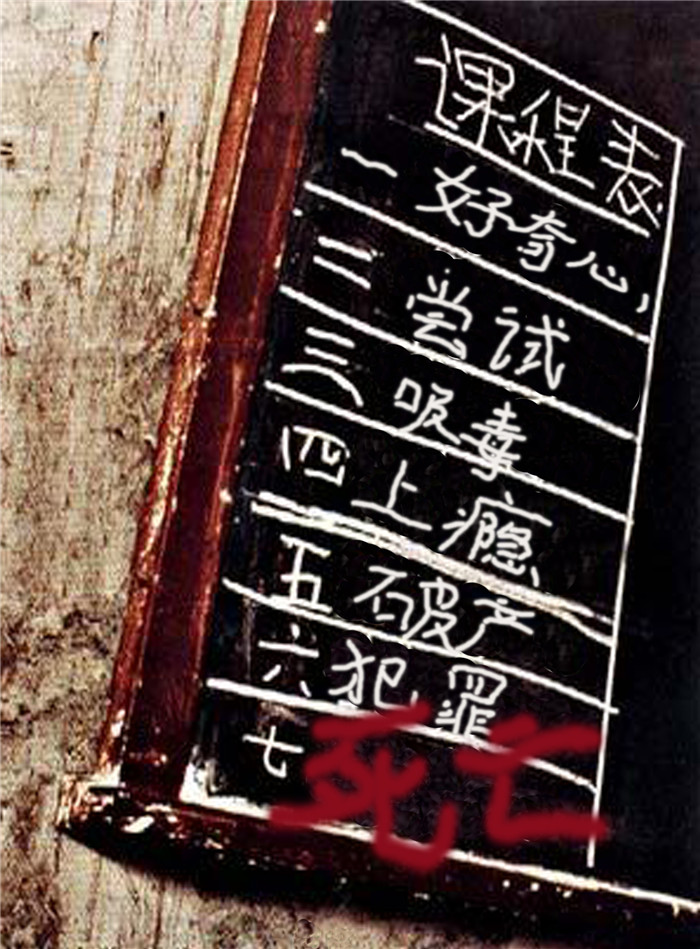 课程表
一 好奇心,
二 尝试
三 吸毒
四 上瘾
五 破产
六 犯罪
七 死亡